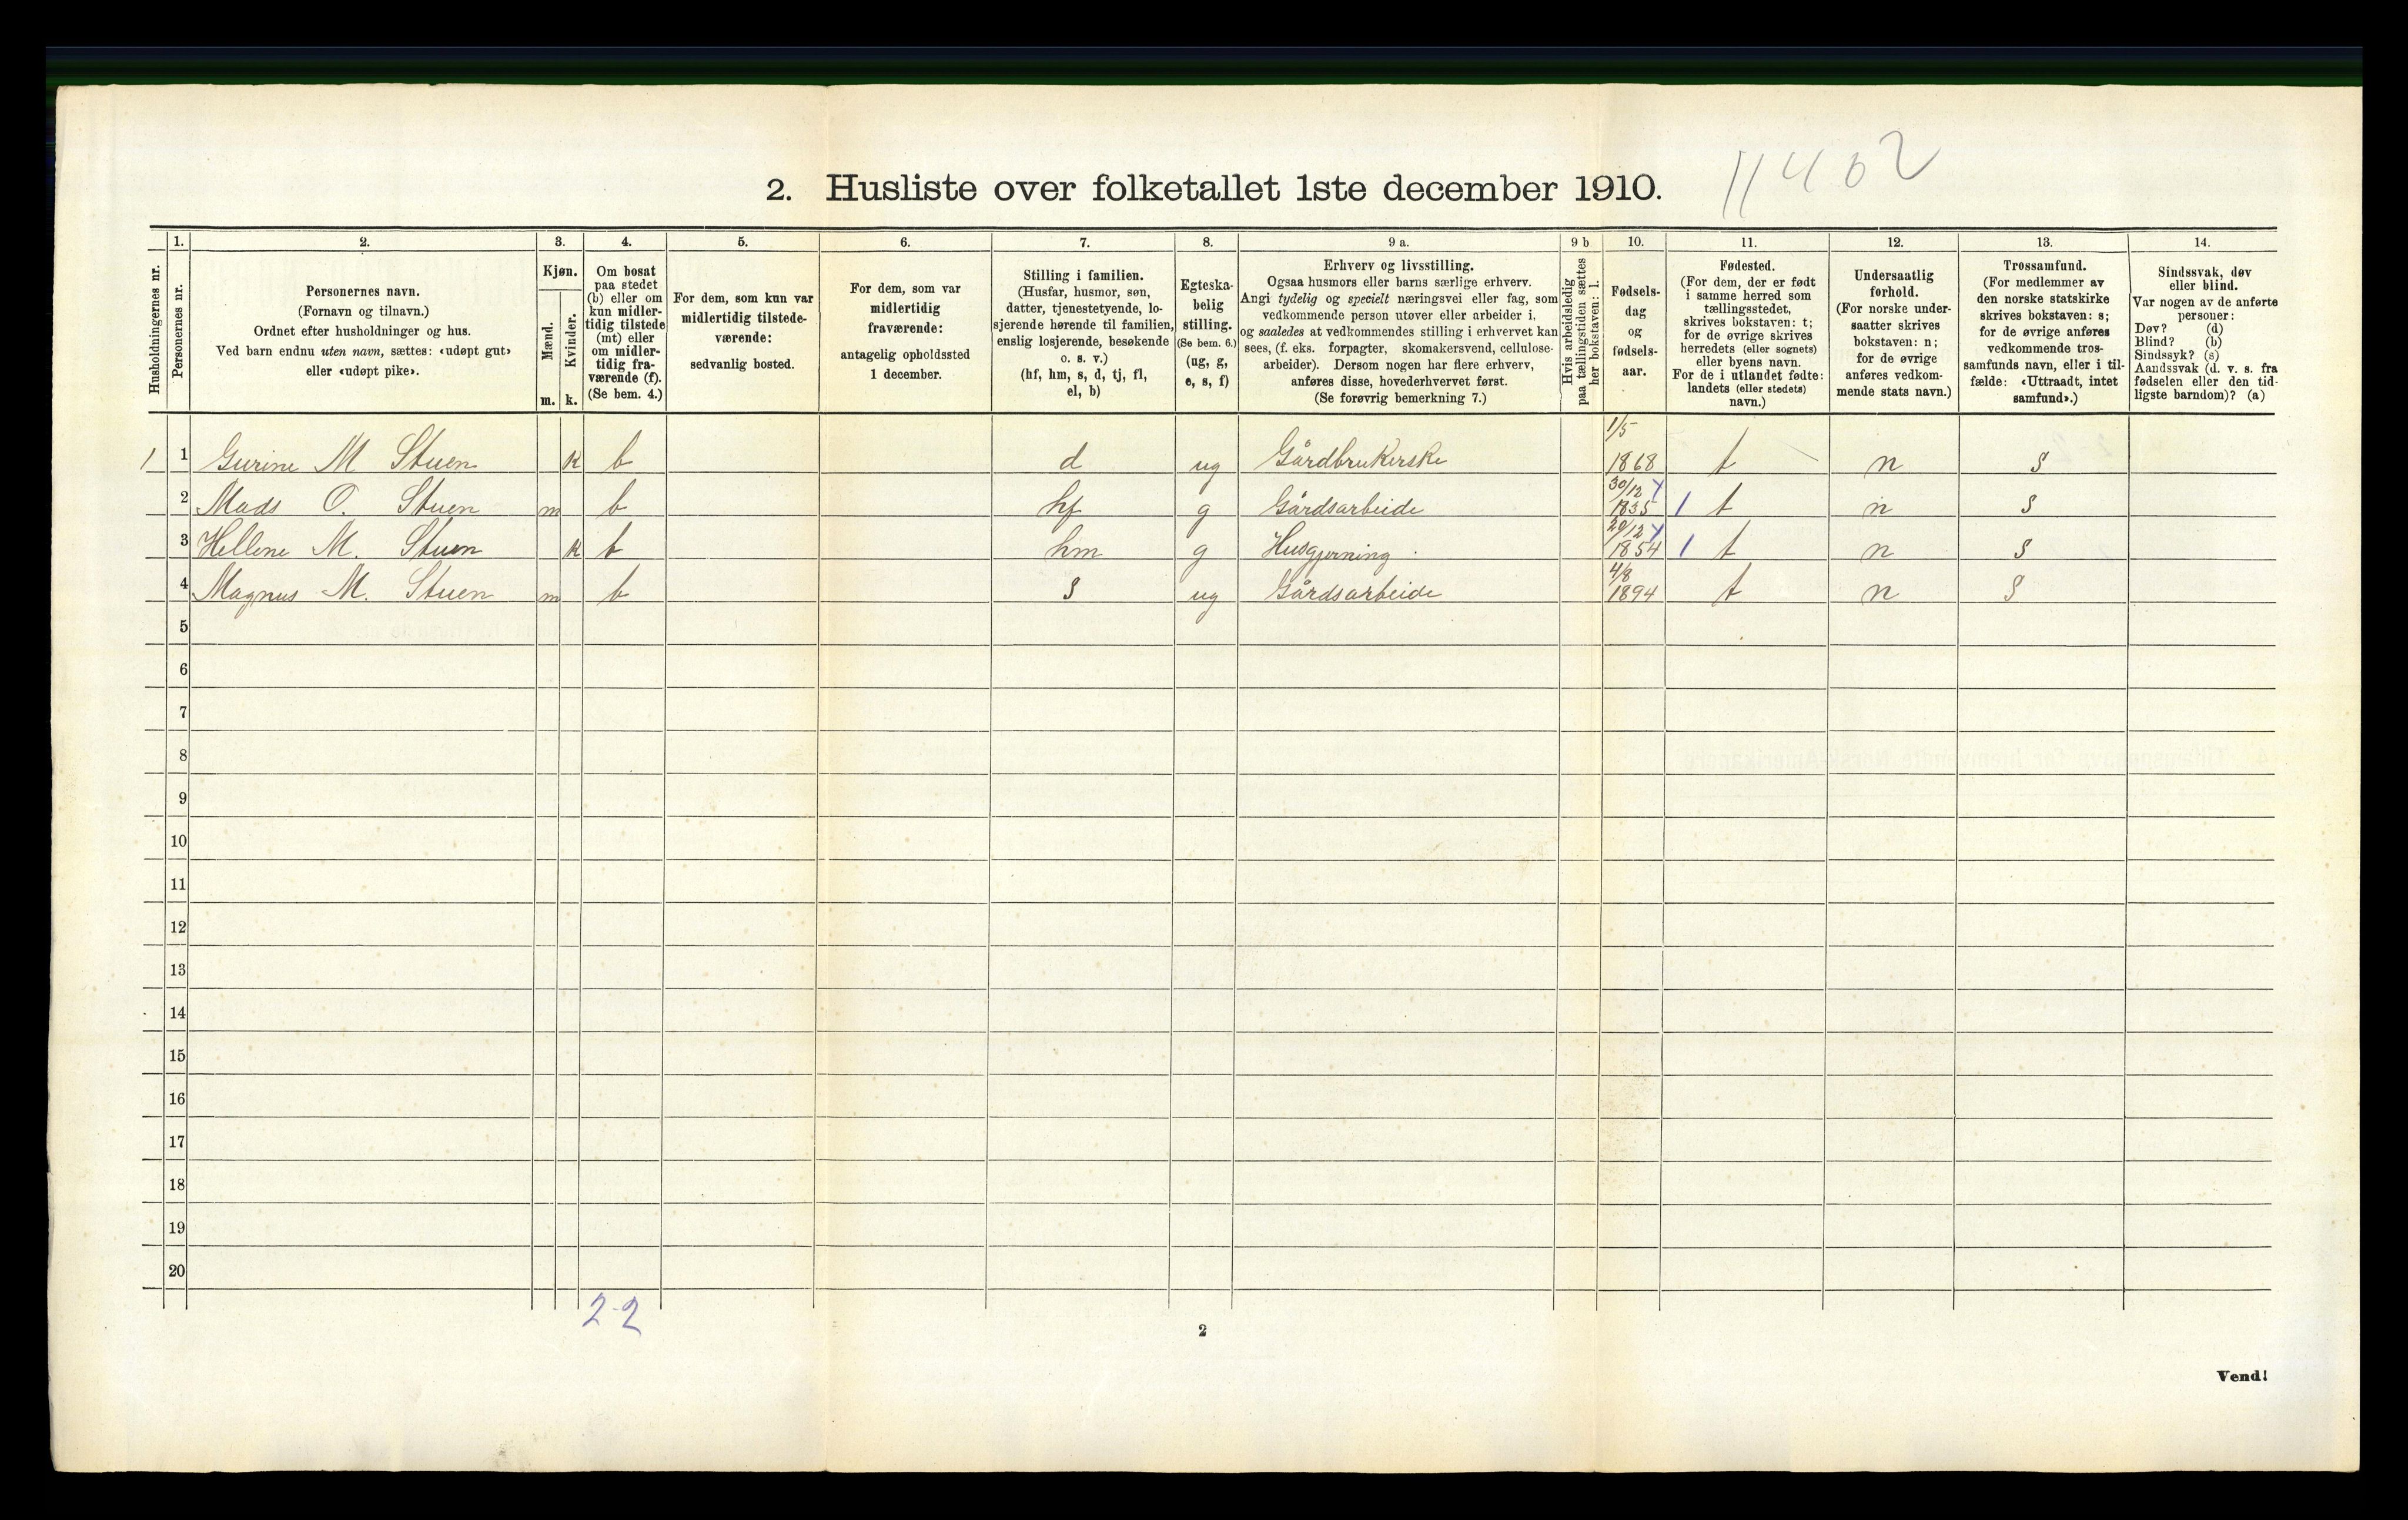 2. Husliste over folketallet 1ste december 1910.
11402
1. 2. 3. 4. 5. 6. 7. 8. 9 a. 9 b 10. 11. 12. 13. 14.
Husholdningernes nr.
Personernes nr.
Personernes navn.
(Fornavn og tilnavn.)
Ordnet efter husholdninger og hus.
Ved barn endnu uten navn, sættes: «udøpt gut»
eller «udøpt pike».
Kjøn.
Mænd.
Kvinder.
m. k.
Om bosat
paa stedet
(b) eller om
kun midler-
tidig tilstede
(mt) eller
om midler-
tidig fra-
værende (f).
(Se bem. 4.)
For dem, som kun var
midlertidig tilstede-
værende:
sedvanlig bosted.
For dem, som var
midlertidig
fraværende:
antagelig opholdssted
1 december.
Stilling i familien.
(Husfar, husmor, søn,
datter, tjenestetyende, lo-
sjerende hørende til familien,
enslig losjerende, besøkende
o. s. v.)
(hf, hm, s, d, tj, fl,
el, b)
Egteska-
belig
stilling.
(Se bem. 6.)
(ug, g,
e, s, f)
Erhverv og livsstilling.
Ogsaa husmors eller barns særlige erhverv.
Angi tydelig og specielt næringsvei eller fag, som
vedkommende person utøver eller arbeider i,
og saaledes at vedkommendes stilling i erhvervet kan
sees, (f. eks. forpagter, skomakersvend, cellulose-
arbeider). Dersom nogen har flere erhverv,
anføres disse, hovederhvervet først.
(Se forøvrig bemerkning 7.)
Hvis arbeidsledig
paa tællingstiden sættes
her bokstaven: l.
Fødsels-
dag
og
fødsels-
aar.
Fødested.
(For dem, der er født
i samme herred som
tællingsstedet,
skrives bokstaven: t;
for de øvrige skrives
herredets (eller sognets)
eller byens navn.
For de i utlandet fødte:
landets (eller stedets)
navn.)
Undersaatlig
forhold.
(For norske under-
saatter skrives
bokstaven: n;
for de øvrige
anføres vedkom-
mende stats navn.)
Trossamfund.
(For medlemmer av
den norske statskirke
skrives bokstaven: s;
for de øvrige anføres
vedkommende tros-
samfunds navn, eller i til-
fælde: «Uttraadt, intet
samfund».)
Sindssvak, døv
eller blind.
Var nogen av de anførte
personer:
Døv? (d)
Blind? (b)
Sindssyk? (s)
Aandssvak (d. v. s. fra
fødselen eller den tid-
ligste barndom)? (a)
1 1 Gurine M Stuen k b d ug Gårdbrukerske 1/5 1868 t n s
2 Mads O. Stuen m b hf g Gårdsarbeide 30/12 1835 1 t n s
3 Hellene M. Stuen k b hm g Husgjerning 20/12 1854 1 t n s
4 Magnus M. Stuen m b s ug Gårdsarbeide 4/8 1894 t n s
5
6
7
8
9
10
11
12
13
14
15
16
17
18
19
20
2-2
2
Vend!